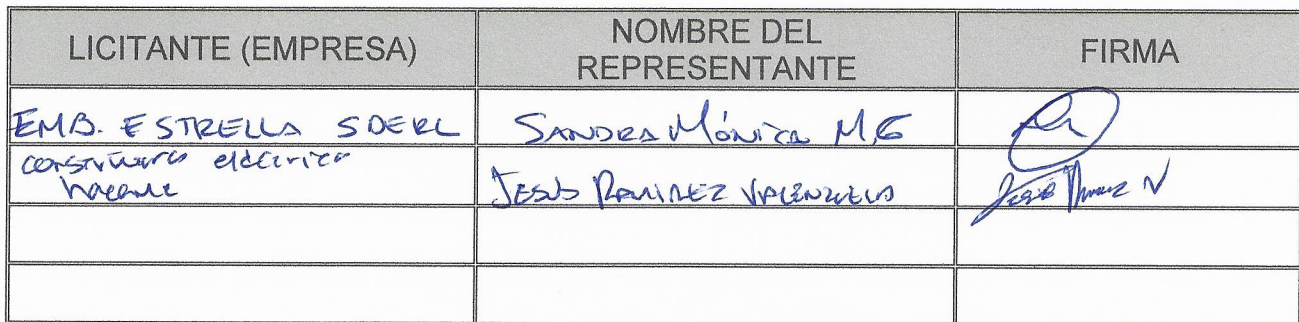 LICITANTE (EMPRESA)
NOMBRE DEL
REPRESENTANTE
FIRMA
EMB. ESTRELLA S DE RL
SANDRA MÓNICA M.G
electrica
JESUS RAMIREZ VALENZUELA